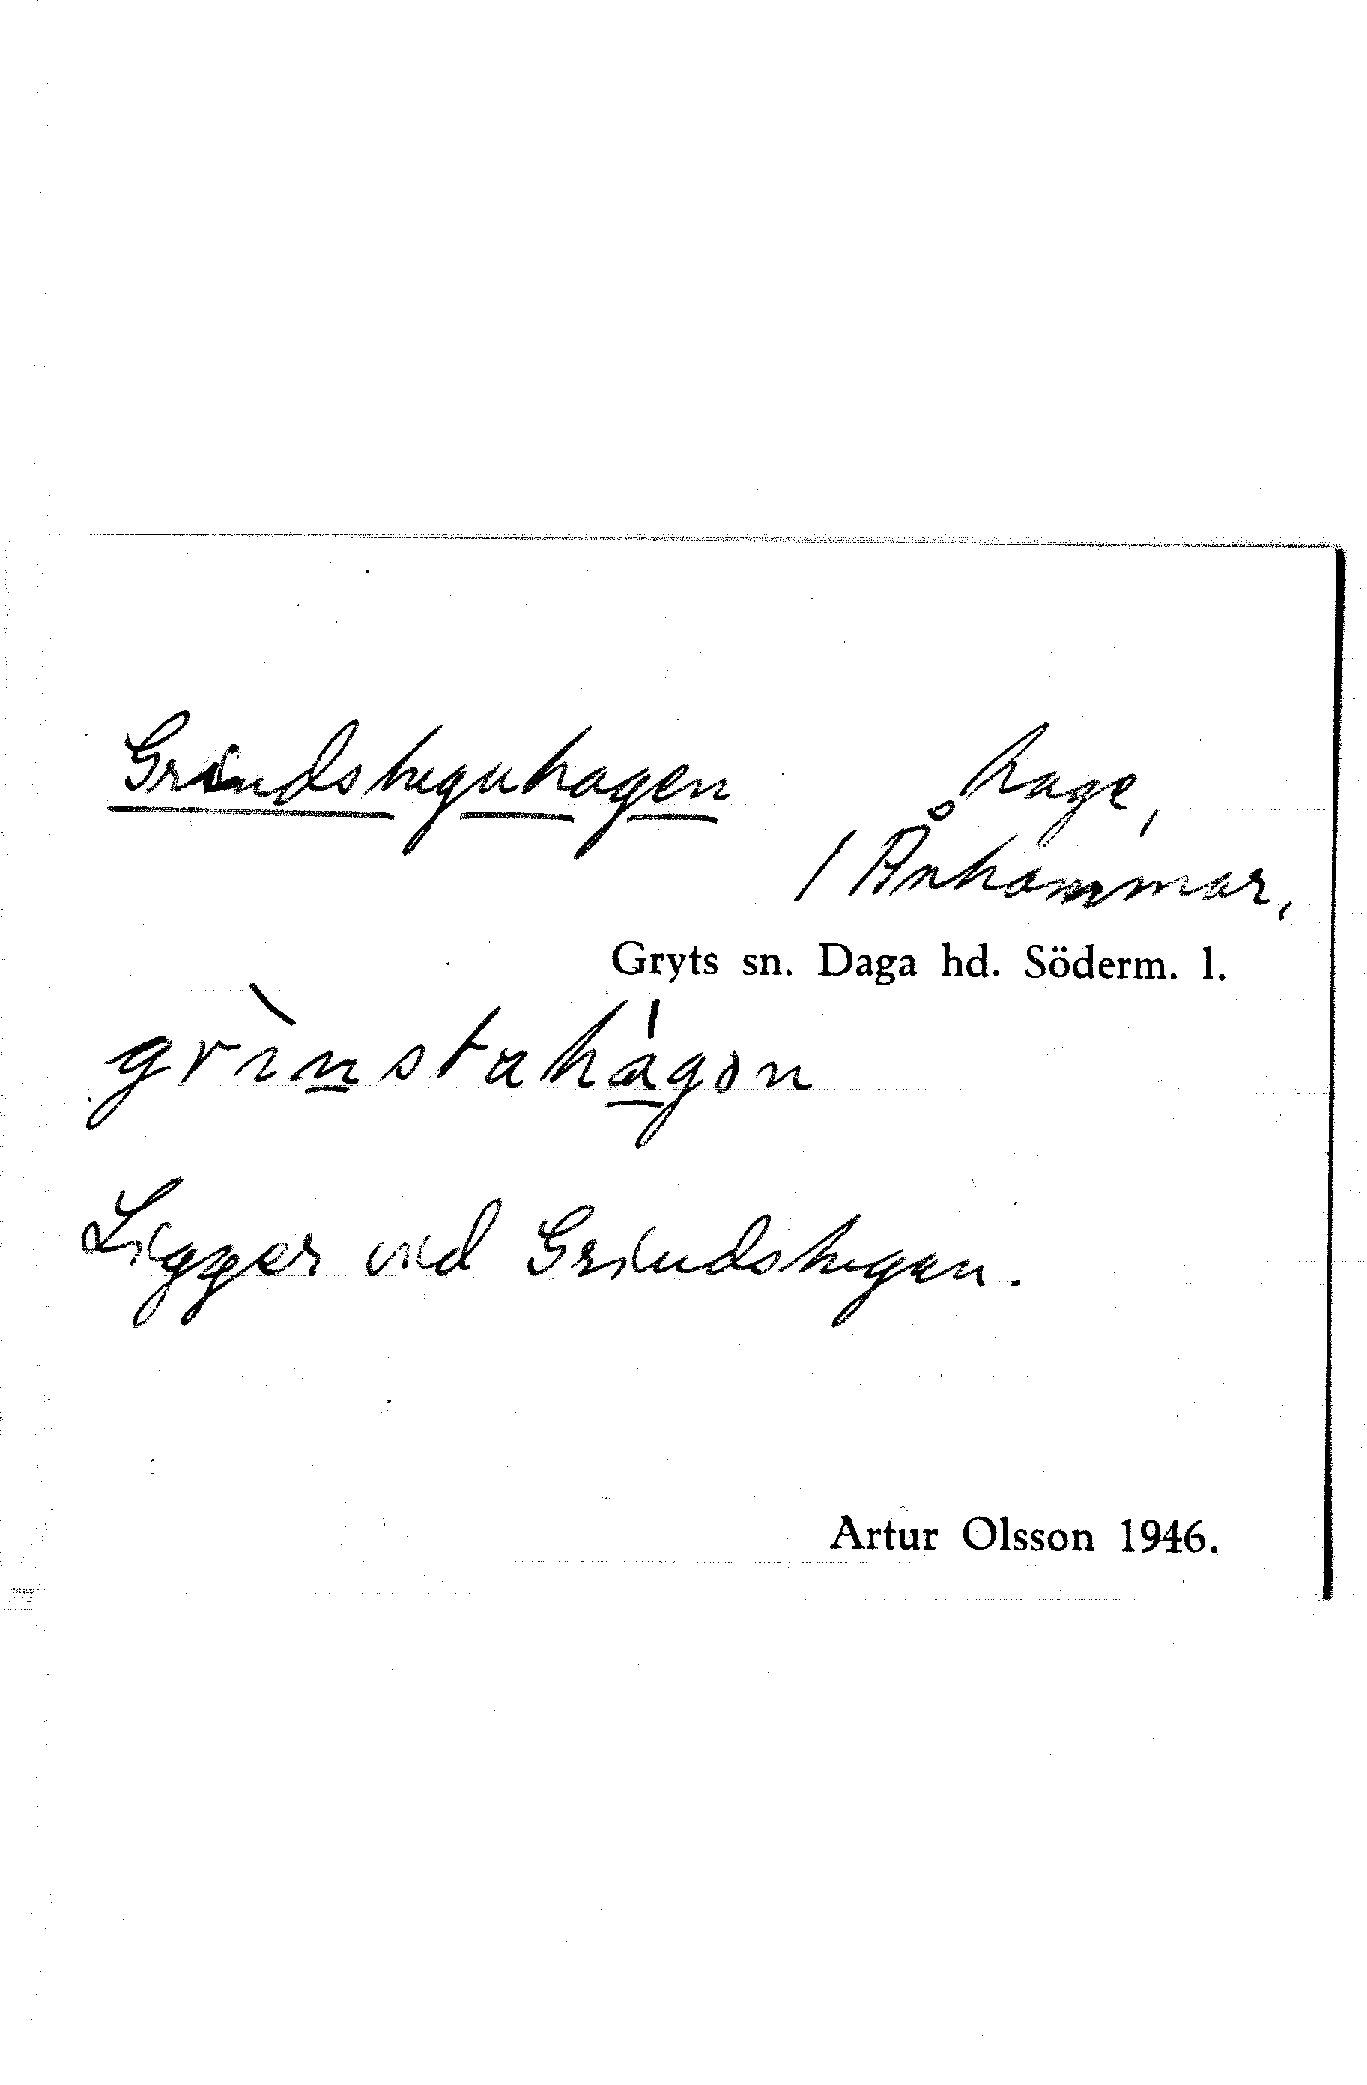 Grindstuguhagen hage,
/ Ånhammar,
Gryts sn. Daga hd. Söderm. l.
grinstahágon
Ligger vid Grindstugan.
Artur Olsson 1946.